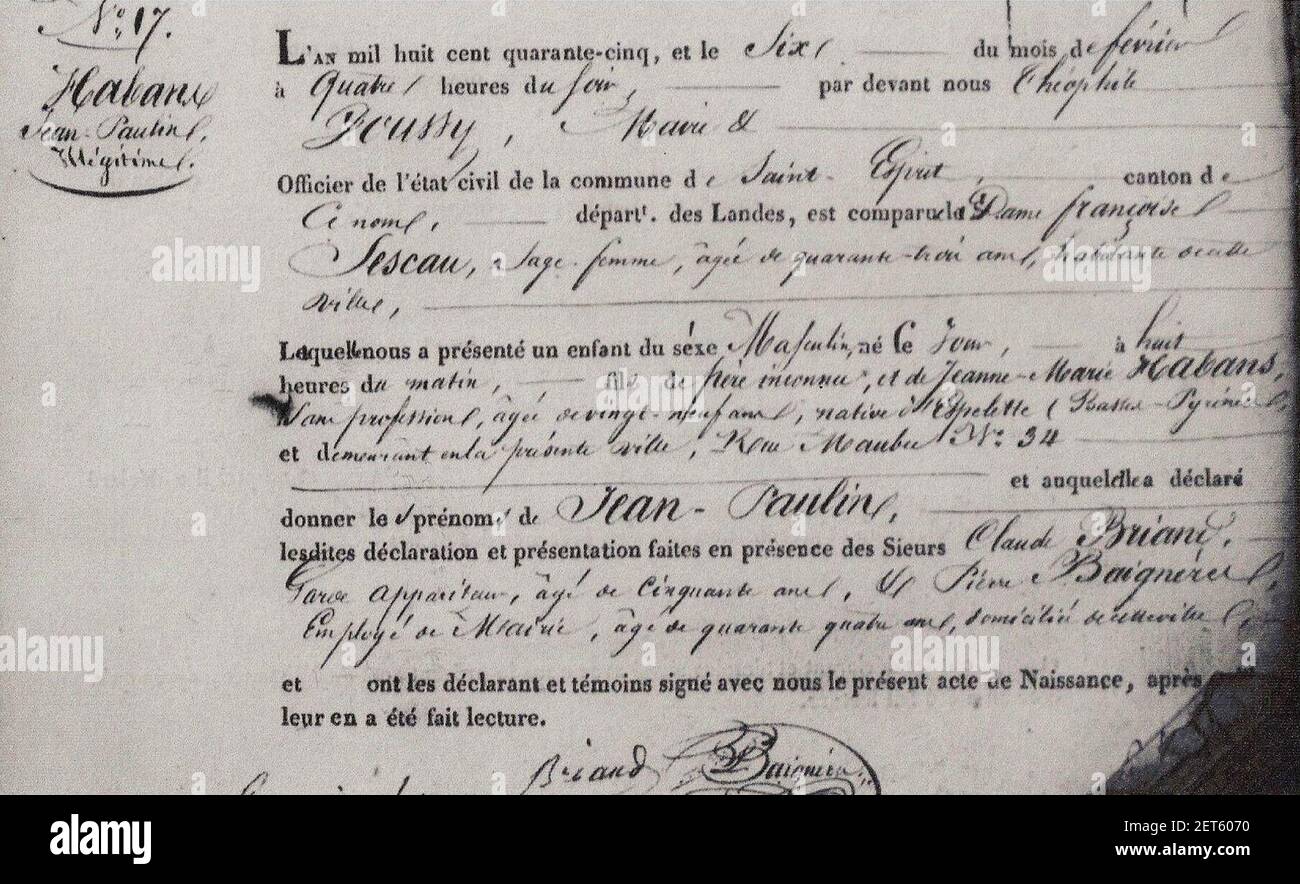 N° 17.
Habans
Jean-Paulin,
Illégitime.
L'AN mil huit cent quarante-cinq, et le Six du mois de février
à Quatre heures du soir, par devant nous Théophile
Boussy, Maire &
Officier de l'état civil de la commune de Saint-Esprit, canton de
Ce nom, départt. des Landes, est comparue la Dame françoise
Sescau, Sage-femme, âgée de quarante-trois ans, habitante de cette
ville,
Laquelle nous a présenté un enfant du sexe Masculin, né Ce Jour, à huit
heures du matin, fils de Père inconnu, et de Jeanne-Marie Habans,
Sans profession, âgée de vingt-neuf ans, native d'Espelette (Basses-Pyrénées),
et demeurant en la présente ville, Rue Maubec N° 34
et auquel elle a déclaré
donner les prénoms de Jean-Paulin,
lesdites déclaration et présentation faites en présence des Sieurs Claude Briand,
Garde appariteur, âgé de Cinquante ans, & Pierre Baignères,
Employé de Mairie, âgé de quarante quatre ans, domiciliés de cette ville,
et ont les déclarant et témoins signé avec nous le présent acte de Naissance, après
leur en a été fait lecture.
Briand Baignères
alamy
alamy
Image ID: 2ET6070
www.alamy.com